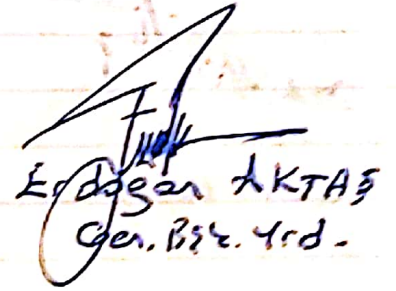 Erdoğan AKTAŞ
Gen. Bşk. Yrd.